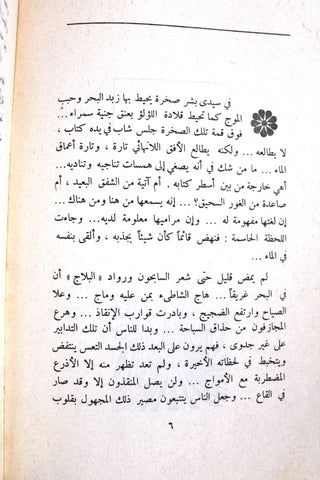 في سيدى بشر صخرة يحيط بها زبد البحر وحبب
الموج كما تحيط قلادة اللؤلؤ بعنق جنية سمراء ...
فوق قمة تلك الصخرة جلس شاب في يده كتاب ،
لا يطالعه ... ولكنه يطالع الأفق اللانهائي تارة ، وتارة أعماق
الماء ... ما من شك في أنه يصغي إلى همسات تناجيه وتناديه...
أهي خارجة من بين أسطر كتابه . أم آتية من الشفق البعيد ، أم
صاعدة من الغور السحيق؟ ... إنه يسمعها من هنا ومن هناك ...
إن لغتها مفهومة له ... وإن مراميها معلومة لديه... وجاءت
اللحظة الحاسمة : فنهض قائماً كأن شيئاً يجذبه ، وألقى بنفسه
في الماء ...
لم يمض قليل حتى شعر السابحون ورواد « البلاج » أن
في البحر غريقاً... هاج الشاطىء بمن عليه وماج ... وعلا
الصياح وارتفع الضجيج ، وبادرت قوارب الإنقاذ ... وهرع
المجازفون من حذاق السباحة ... وبدا للناس أن تلك التدابير
على غير جدوى ، فهم يرون على البعد ذلك الجسد التعس ينتفض
ويتخبط في لحظاته الأخيرة ، ولم تعد تظهر منه إلا الأذرع
المضطربة مع الأمواج ... ولن يصل المنقذون إلا وقد صار
في القاع ... وجعل الناس يتتبعون مصير ذلك المجهول بقلوب
٦